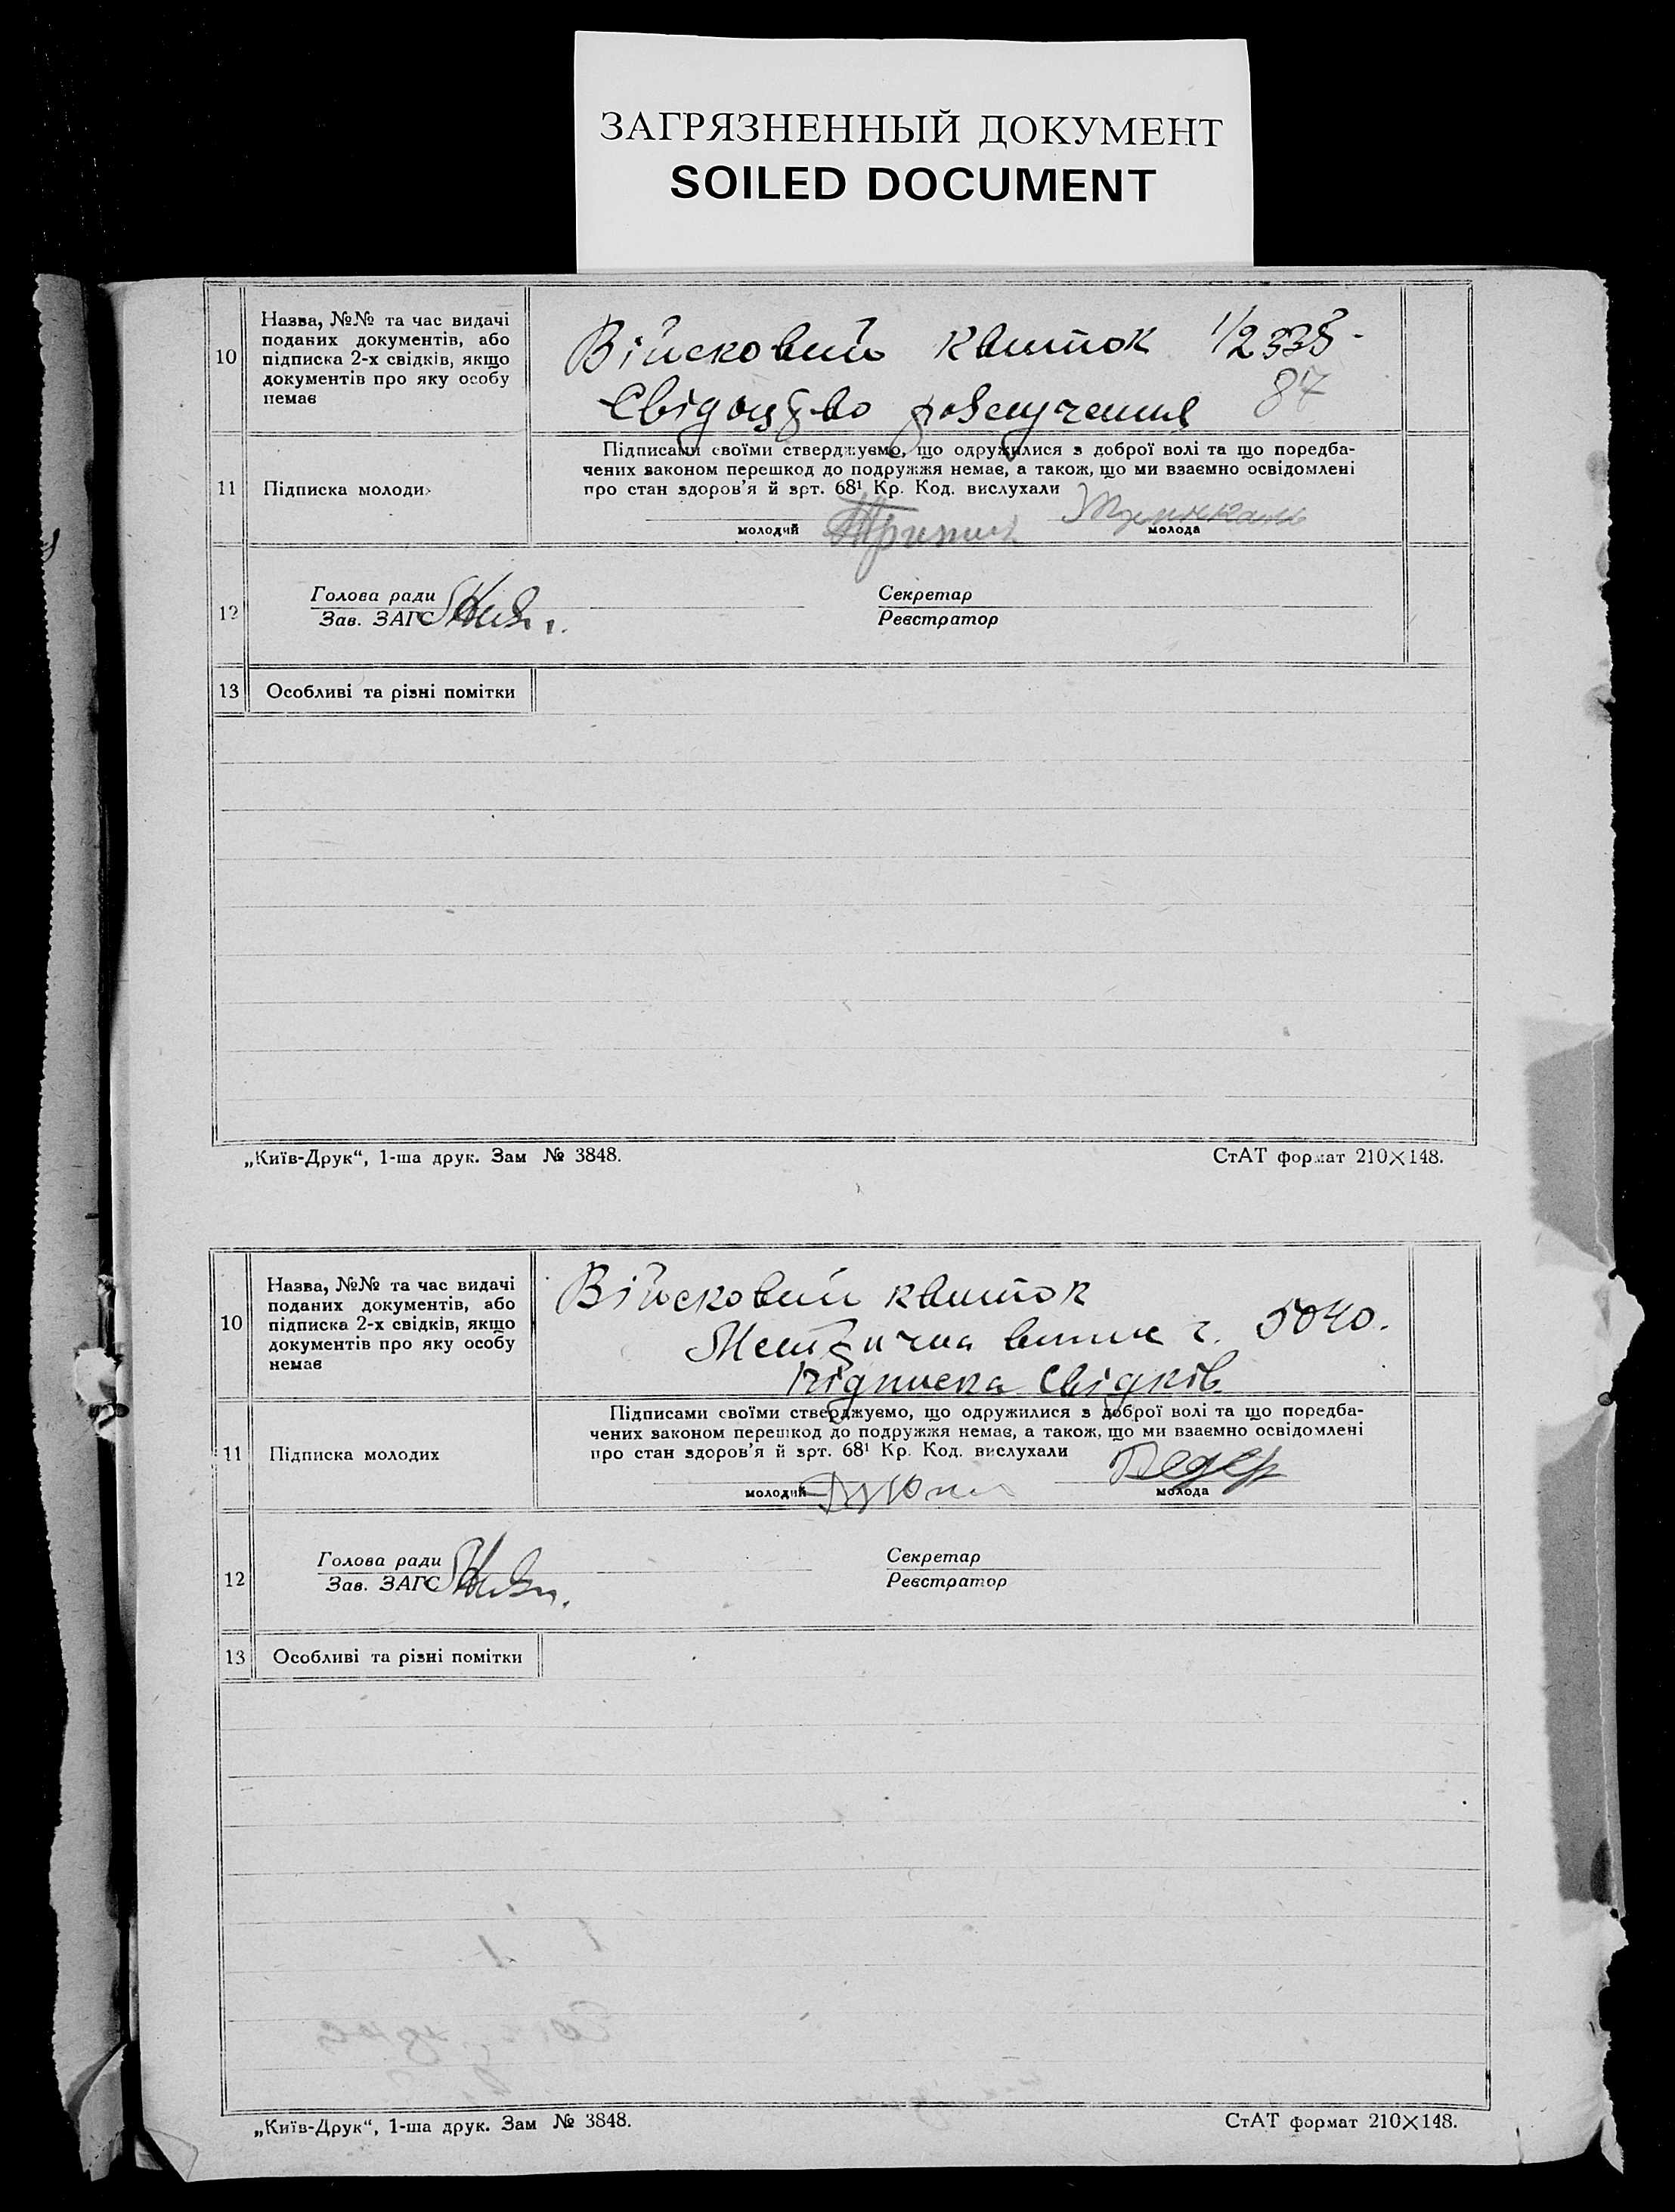 ЗАГРЯЗНЕННЫЙ ДОКУМЕНТ
SOILED DOCUMENT
10
Назва, №№ та час видачі
поданих документів, або
підписка 2-х свідків, якщо
документів про яку особу
немає
Військовий квиток
Свідоцтво розлучення 87
11
Підписка молоди
Підписами своїми стверджуємо, що одружилися з доброї волі та що поредба-
чених законом перешкод до подружжя немає, а також, що ми взаємно освідомлені
про стан здоров'я й арт. 68¹ Кр. Код. вислухали
молодий
молода
12
Голова ради
Зав. ЗАГС
Секретар
Реєстратор
13 Особливі та різні помітки
„Київ-Друк“, 1-ша друк. Зам № 3848.
СтАТ формат 210×148.
10
Назва, №№ та час видачі
поданих документів, або
підписка 2-х свідків, якщо
документів про яку особу
немає
Військовий квиток
Метрична випис 5040.
Підписка свідків
11
Підписка молодих
Підписами своїми стверджуємо, що одружилися з доброї волі та що поредба-
чених законом перешкод до подружжя немає, а також, що ми взаємно освідомлені
про стан здоров'я й арт. 68¹ Кр. Код. вислухали
молодий
молода
12
Голова ради
Зав. ЗАГС
Секретар
Реєстратор
13 Особливі та різні помітки
„Київ-Друк“, 1-ша друк. Зам № 3848.
СтАТ формат 210×148.